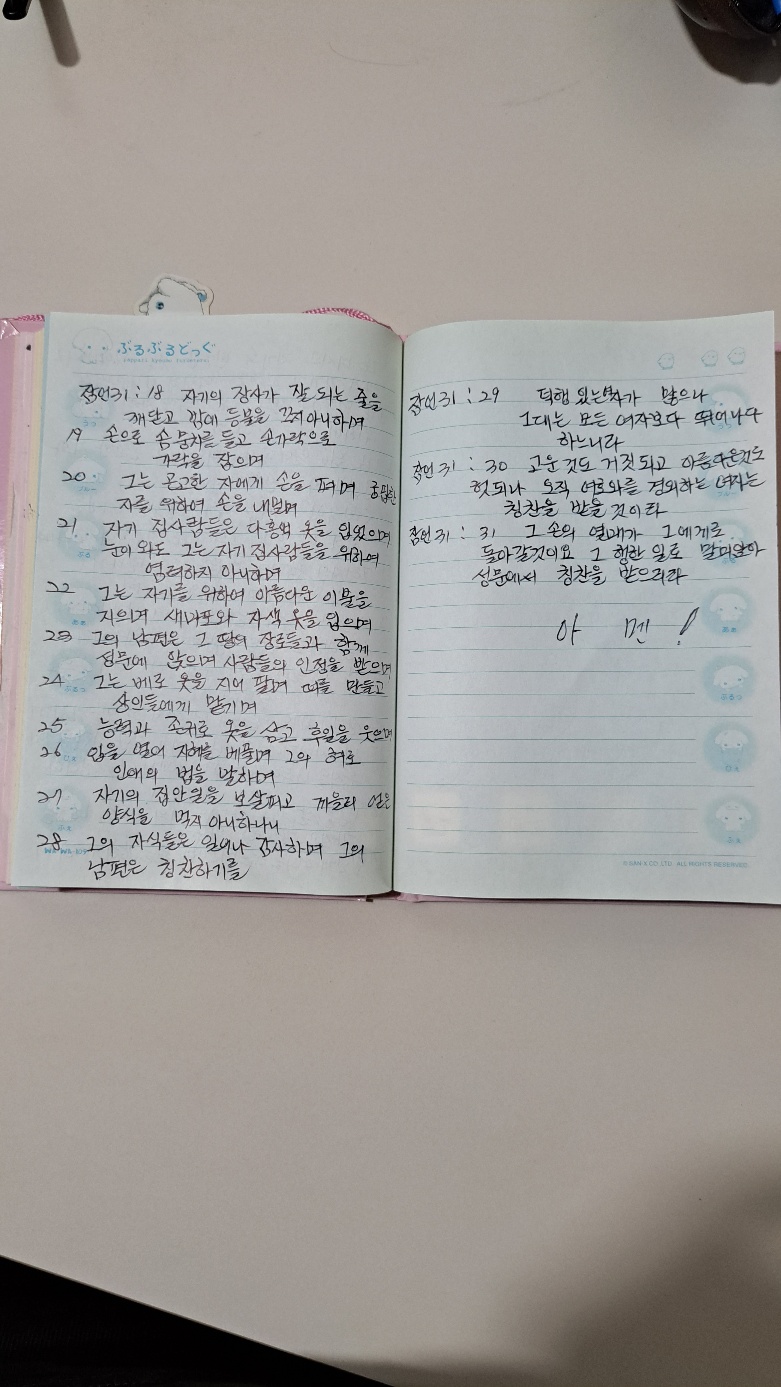 ぶるぶるどっぐ
잠언31:18 자기의 장사가 잘 되는 줄을
깨닫고 밤에 등불을 끄지 아니하며
19 손으로 솜 뭉치를 들고 손가락으로
가락을 잡으며
20 그는 곤고한 자에게 손을 펴며 궁핍한
자를 위하여 손을 내밀며
21 자기 집사람들은 다 홍색 옷을 입었으며
눈이 와도 그는 자기 집사람들을 위하여
염려하지 아니하며
22 그는 자기를 위하여 아름다운 이불을
지으며 세마포와 자색 옷을 입으며
23 그의 남편은 그 땅의 장로들과 함께
성문에 앉으며 사람들의 인정을 받으며
24 그는 베로 옷을 지어 팔며 띠를 만들고
상인들에게 맡기며
25 능력과 존귀로 옷을 삼고 후일을 웃으며
26 입을 열어 지혜를 베풀며 그의 혀로
인애의 법을 말하며
27 자기의 집안 일을 보살피고 게을리 얻은
양식을 먹지 아니하나니
28 그의 자식들은 일어나 감사하며 그의
남편은 칭찬하기를
잠언31:29 덕행 있는 여자가 많으나
그대는 모든 여자보다 뛰어나다
하느니라
잠언31:30 고운것도 거짓되고 아름다운것도
헛되나 오직 여호와를 경외하는 여자는
칭찬을 받을 것이라
잠언31:31 그 손의 열매가 그에게로
돌아갈것이요 그 행한 일로 말미암아
성문에서 칭찬을 받으리라
아 멘!
©SAN-X CO.,LTD. ALL RIGHTS RESERVED.